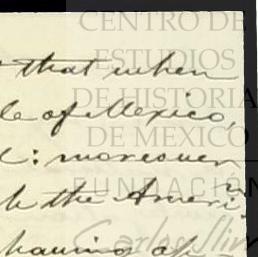 CENTRO DE
ESTUDIOS
DE HISTORIA
DE MEXICO
FUNDACIÓN
Carlos Slim
that when
le of Mexico,
: moreover
the Ameri
having